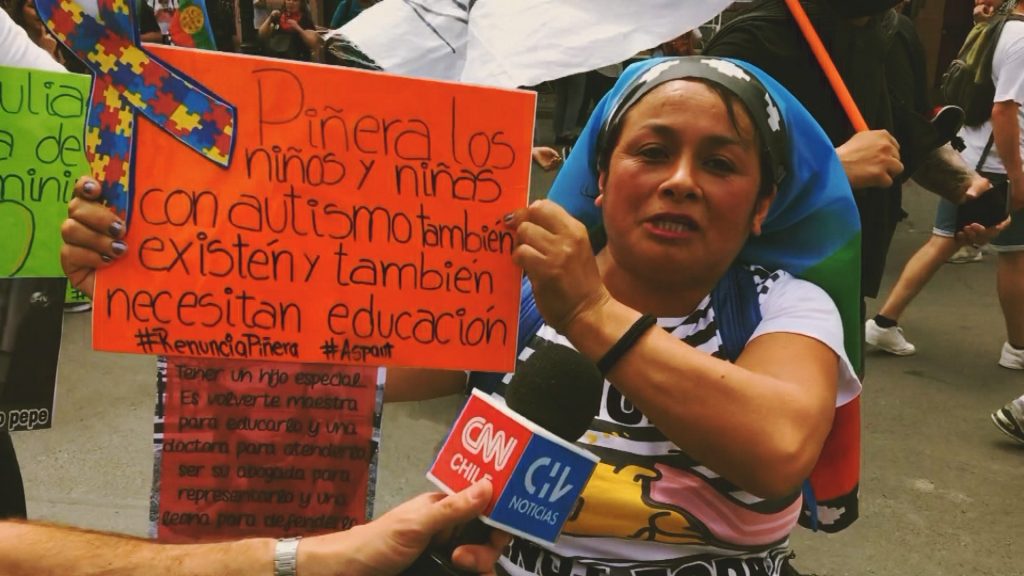 Piñera los
niños y niñas
con autismo también
existén y también
necesitan educación
#RenunciaPiñera #Aspaut
Tener un hijo especial
Es volverte maestra
para educarlo y una
doctora para atenderlo
ser su abogada para
representarlo y una
leona para defenderlo
ulia
a de
mini
o pepe
CNN
CHILE
CHV
NOTICIAS